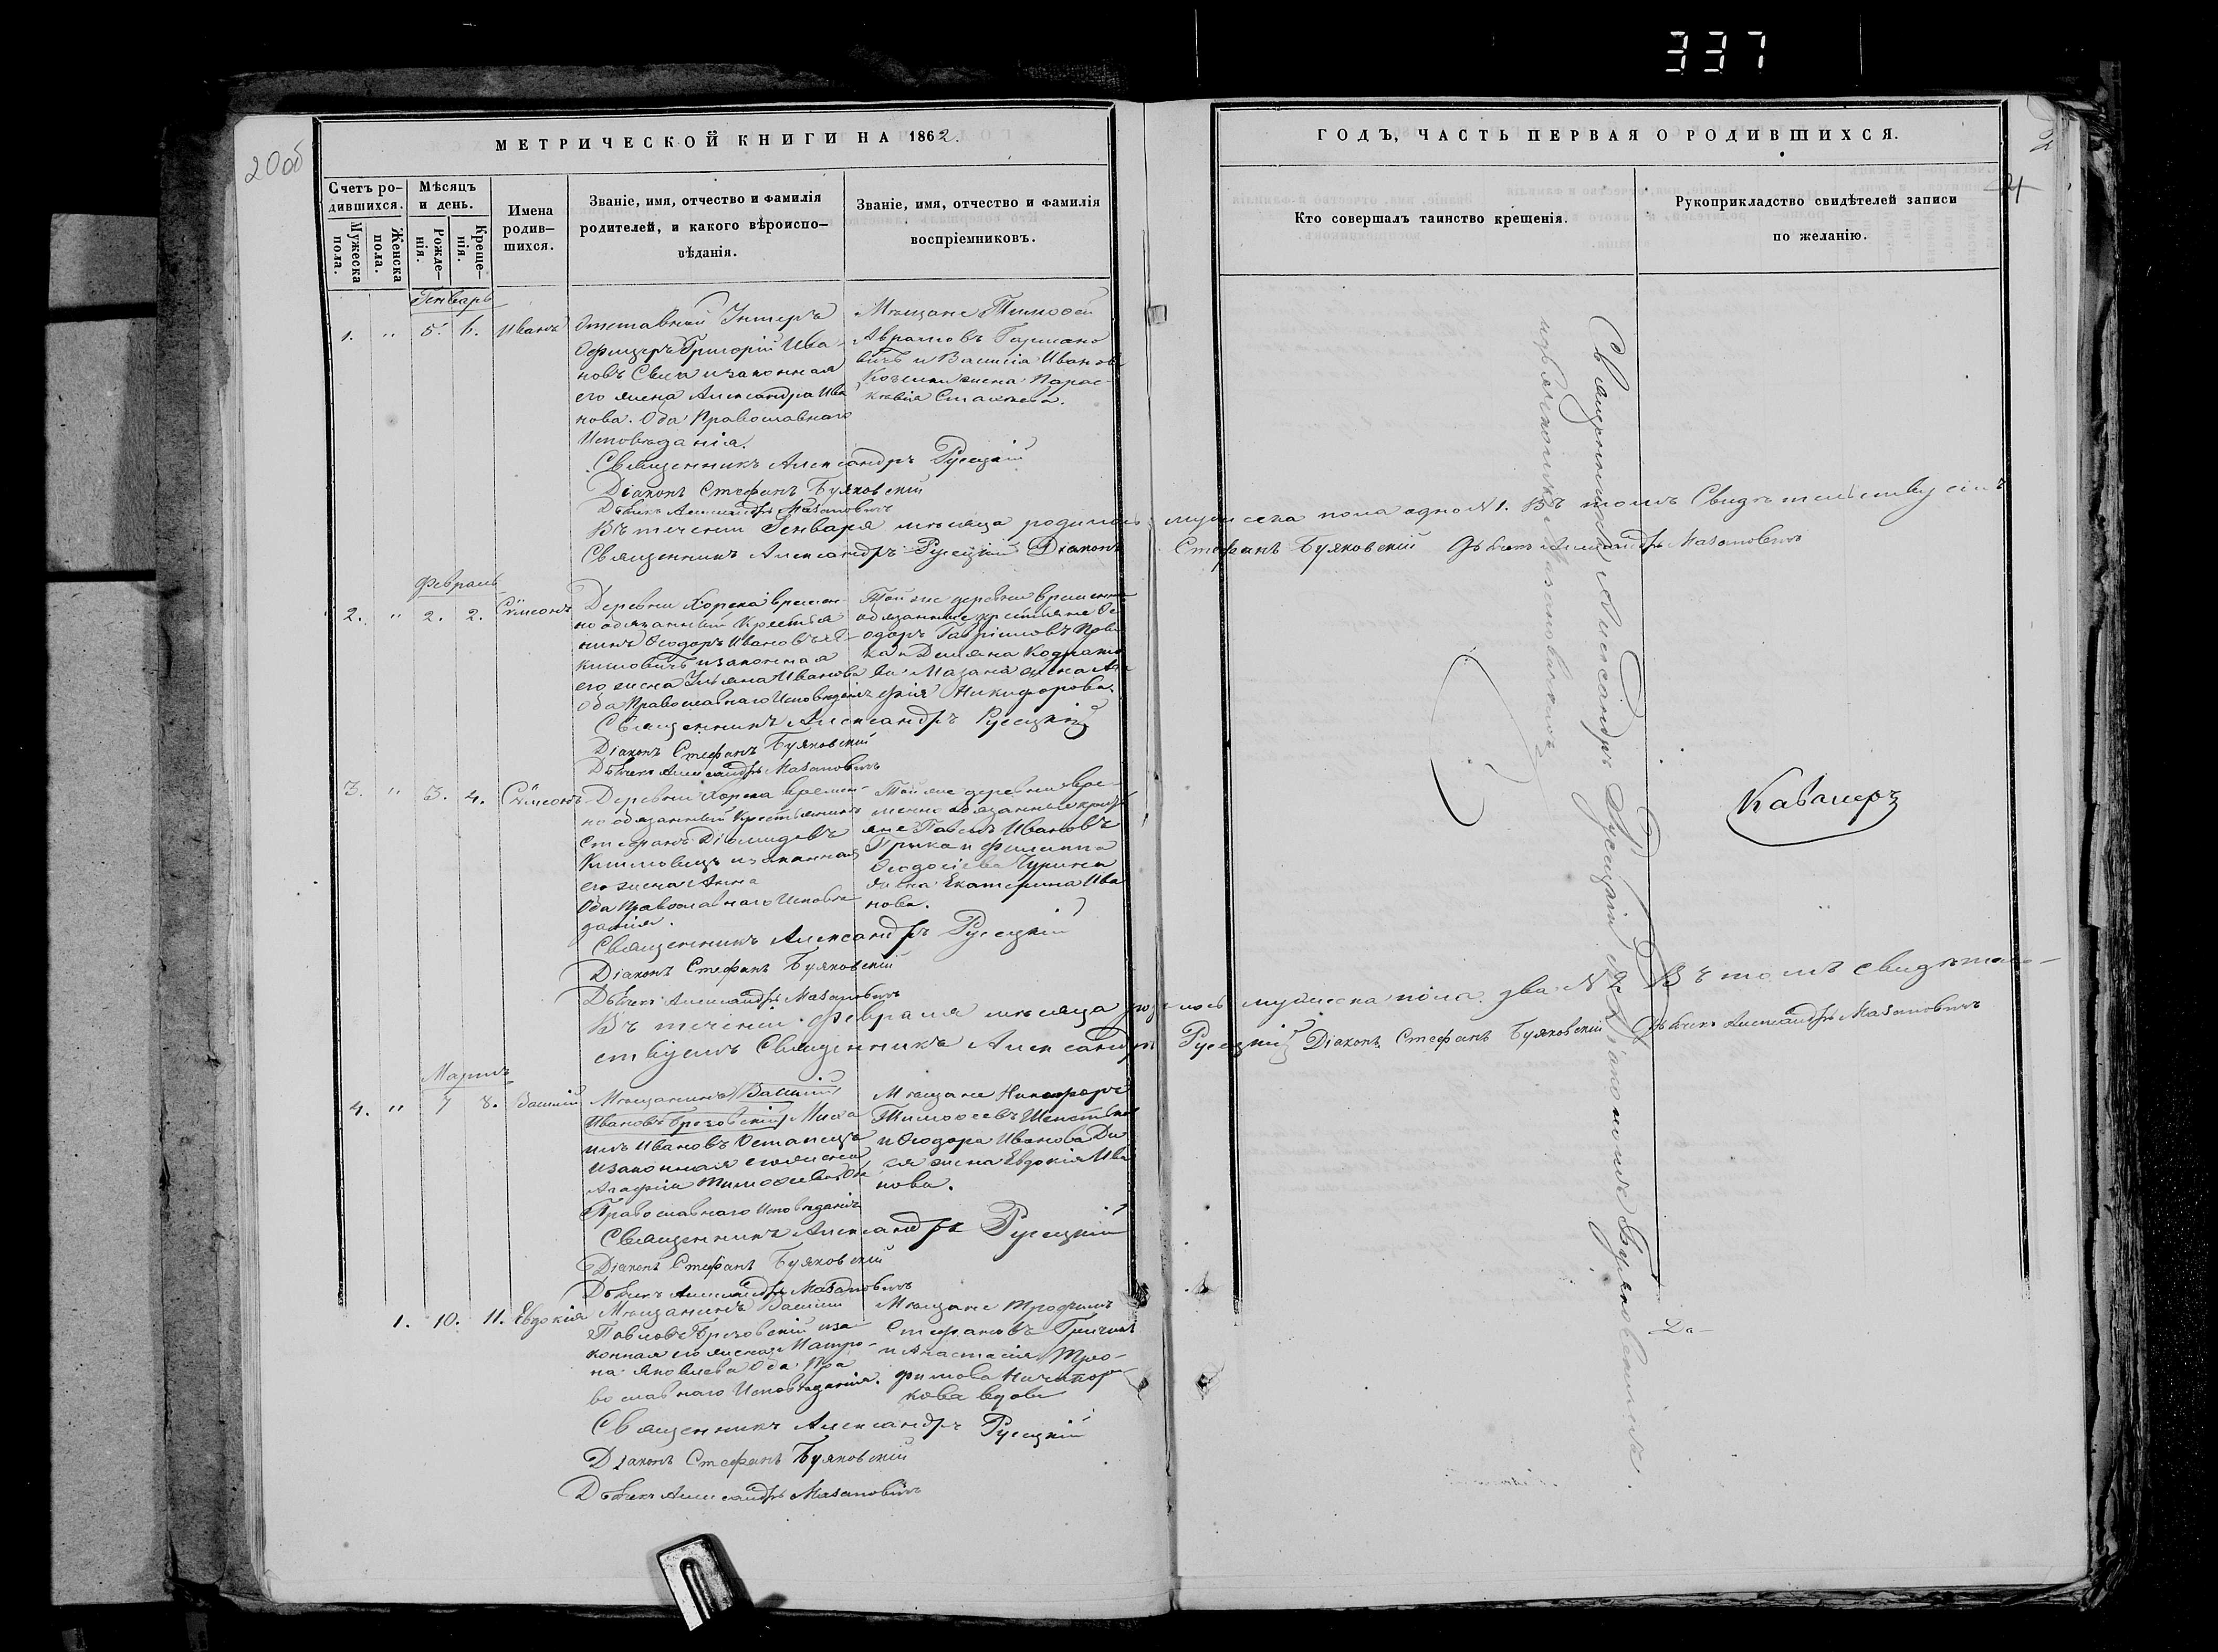 337
20об
МЕТРИЧЕСКОЙ КНИГИ НА 1862.
Счетъ ро-
дившихся.
Мужеска
пола.
Женска
пола.
Мѣсяцъ
и день.
Рожде-
нія.
Креще-
нія.
Имена
родив-
шихся.
Званіе, имя, отчество и фамилія
родителей, и какого вѣроиспо-
вѣданія.
Званіе, имя, отчество и фамилія
воспріемниковъ.
Генварь
1. " 5. 6. Иванъ
Отставный Унтеръ
Офицеръ Григорій Ива
новъ и законная
его жена Александра Ива
нова. Оба Православнаго
Исповѣданія.
Мѣщане Тимофей
Аврамовъ
и Василія Иванова
жена Парас
кевія
Священникъ Александръ Русецкій
Діаконъ Стефанъ Буяковскій
Дьячекъ Александръ Мазановичъ
Въ теченіи Генваря мѣсяца родилось мужеска пола одно N 1. Въ томъ Свидѣтельствуемъ
Священникъ Александръ Русецкій Діаконъ Стефанъ Буяковскій Дьячекъ Александръ Мазановичъ
Февраль
2. " 2. 2. Сѵмеонъ
Деревни Хорека времен-
но обязанный Крестья
нинъ Ѳеодоръ Ивановъ
и законная
его жена Ульяна Иванова
Оба Православнаго Исповѣданія
Той же деревни временно
обязанные крестьяне Ѳе
одоръ Гавріиловъ
и Демяна
Мазана жена
Никифорова.
Священникъ Александръ Русецкій
Діаконъ Стефанъ Буяковскій
Дьячекъ Александръ Мазановичъ
3. " 3. 4. Сѵмеонъ
Деревни Хорека времен-
но обязанный Крестьянинъ
Стефанъ Діомидовъ
и законная
его жена Анна
Оба Православнаго Исповѣ
данія.
Той же деревни вре-
менно обязанные крестья
не Павелъ Ивановъ
и Филиппа
Ѳеодосіева
Екатерина Ива
нова.
Священникъ Александръ Русецкій
Діаконъ Стефанъ Буяковскій
Дьячекъ Александръ Мазановичъ
Въ теченіи Февраля мѣсяца родилось мужеска пола два N 2. Въ томъ свидѣтель-
ствуемъ Священникъ Александръ Русецкій Діаконъ Стефанъ Буяковскій Дьячекъ Александръ Мазановичъ
Мартъ
4. " 7 8. Василій
Мѣщанинъ Василій
Ивановъ Брезовскій Миха
илъ Ивановъ Остапецъ
и законная его жена
Агафія Тимофеева Оба
Православнаго Исповѣданія
Мѣщане Никифоръ
Тимофеевъ
и Ѳеодора Иванова
жена Евдокія Ива
нова.
Священникъ Александръ Русецкій
Діаконъ Стефанъ Буяковскій
Дьячекъ Александръ Мазановичъ
1. 10. 11. Евдокія
Мѣщанинъ Василій
Павловъ Брезовскій и за
конная его жена Матро-
на Яковлева Оба Пра
вославнаго Исповѣданія.
Мѣщане Трофимъ
Стефановъ
и Анастасія Тро-
фимова Ничипор
кова вдова
Священникъ Александръ Русецкій
Діаконъ Стефанъ Буяковскій
Дьячекъ Александръ Мазановичъ
ГОДЪ, ЧАСТЬ ПЕРВАЯ О РОДИВШИХСЯ.
Кто совершалъ таинство крещенія.
Рукоприкладство свидѣтелей записи
по желанію.
Священникъ Александръ Русецкій съ Діакономъ Буяковскимъ
и дьячкомъ Мазановичемъ
Кавалеръ
Да-